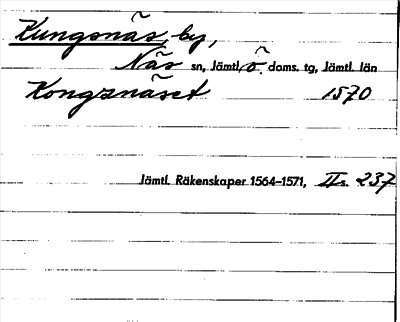 Kungsnäs, by,
Näs sn, Jämtl. ö. doms. tg, Jämtl. län
Kongznäset 1570
Jämtl. Räkenskaper 1564–1571, II s. 237